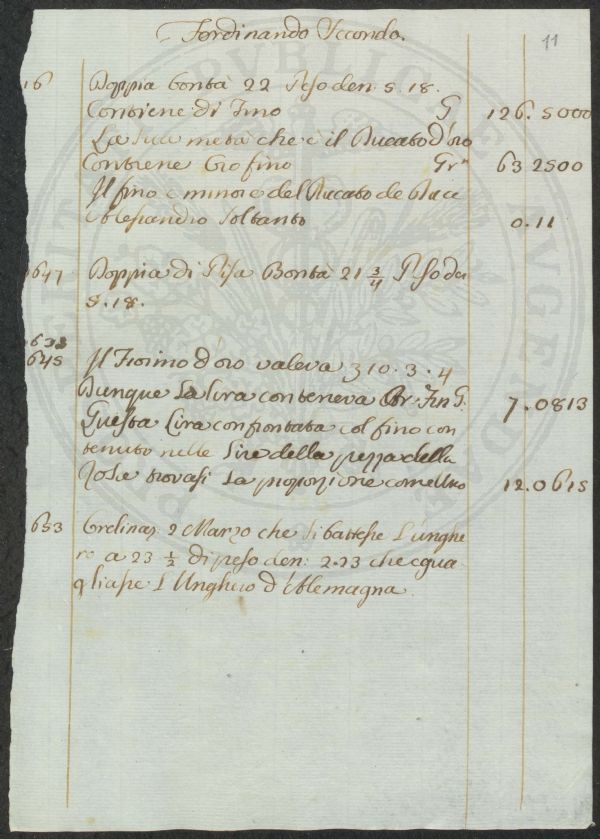 Ferdinando Secondo.
11
16 Doppia bontà 22 Peso den. 5. 18.
Contiene di Fino G 126. 5000
La sua metà che è il Ducato d'oro
Contiene Gro fino Grⁿ 63 2500
Il fino è minore del Ducato de
Alessandro soltanto 0. 11
647 Doppia di Pisa Bontà 21 3/4 Peso da
5. 18.
638
645 Il Fiorino d'oro valeva 310. 3. 4
Dunque La lira conteneva G. 7. 0813
Questa Lira confrontata col fino con
tenuto nelle Lire della pezza della
Rosa trovasi La proporzione come 12. 0615
653 2 Marzo che si battesse L'unghe
ro a 23 1/2 di peso den: 2. 23 che egua
gliasse L'Unghero d'Alemagna.
PVBLICAE